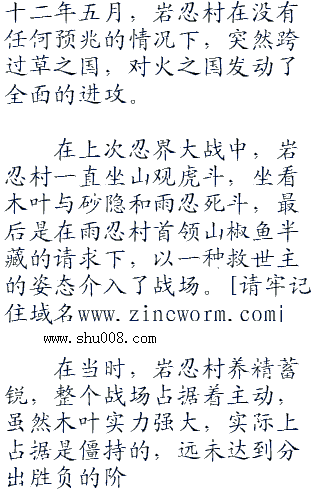 十二年五月，岩忍村在没有
任何预兆的情况下，突然跨
过草之国，对火之国发动了
全面的进攻。
在上次忍界大战中，岩
忍村一直坐山观虎斗，坐看
木叶与砂隐和雨忍死斗，最
后是在雨忍村首领山椒鱼半
藏的请求下，以一种救世主
的姿态介入了战场。[请牢记
住域名www.zincworm.com|
www.shu008.com
在当时，岩忍村养精蓄
锐，整个战场占据着主动，
虽然木叶实力强大，实际上
占据是僵持的，远未达到分
出胜负的阶